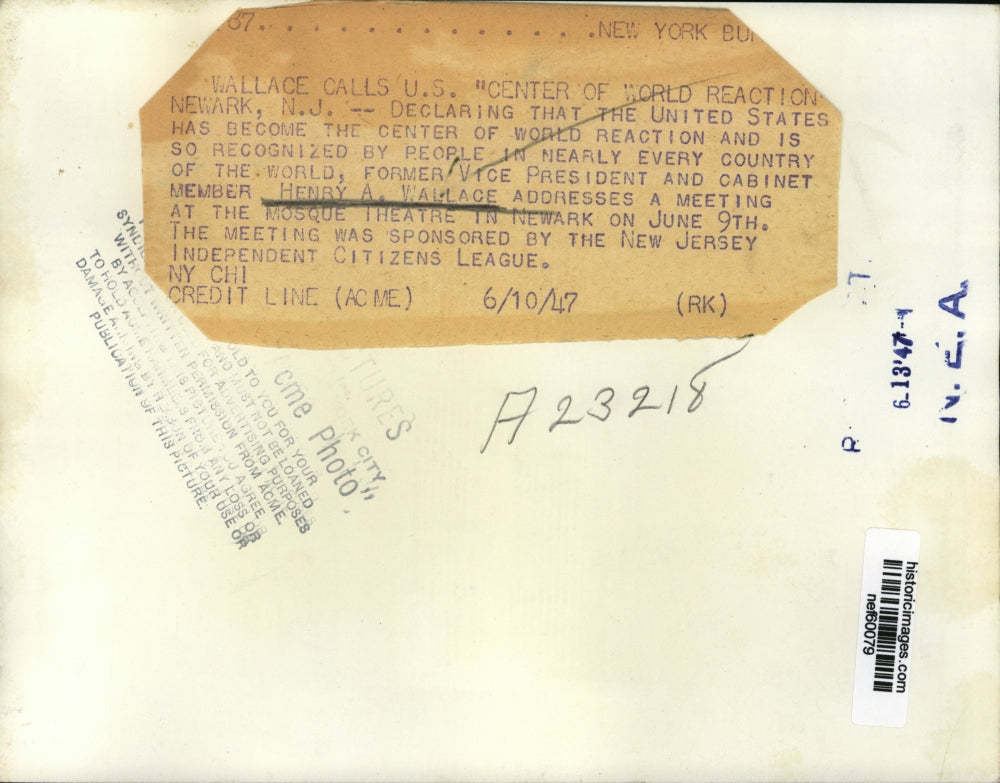 37. . . . . . . . . . . . . . .NEW YORK
WALLACE CALLS U.S. "CENTER OF WORLD REACTION
NEWARK, N.J. -- DECLARING THAT THE UNITED STATES
HAS BECOME THE CENTER OF WORLD REACTION AND IS
SO RECOGNIZED BY PEOPLE IN NEARLY EVERY COUNTRY
OF THE WORLD, FORMER VICE PRESIDENT AND CABINET
MEMBER HENRY A. WALLACE ADDRESSES A MEETING
AT THE MOSQUE THEATRE IN NEWARK ON JUNE 9TH.
THE MEETING WAS SPONSORED BY THE NEW JERSEY
INDEPENDENT CITIZENS LEAGUE.
NY CHI
CREDIT LINE (ACME) 6/10/47 (RK)
A23218
K CITY,
Acme Photo"
OLD TO YOU FOR YOUR
AND MUST NOT BE LOANED
FOR ADVERTISING PURPOSES
WRITTEN PERMISSION FROM ACME.
PICTURE YOU AGREE
TO HOLD ACME HARMLESS FROM ANY LOSS OR
DAMAGE ARISING BY REASON OF YOUR USE OR
PUBLICATION OF THIS PICTURE.
R
6-13'47-
N. E. A.
historicimages.com
nef60079